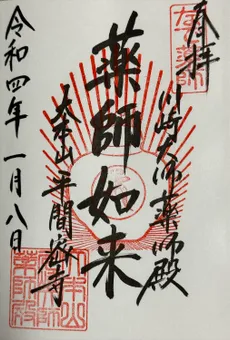 奉拝
川崎大師薬師殿
薬師如来
大本山平間寺
令和四年一月八日